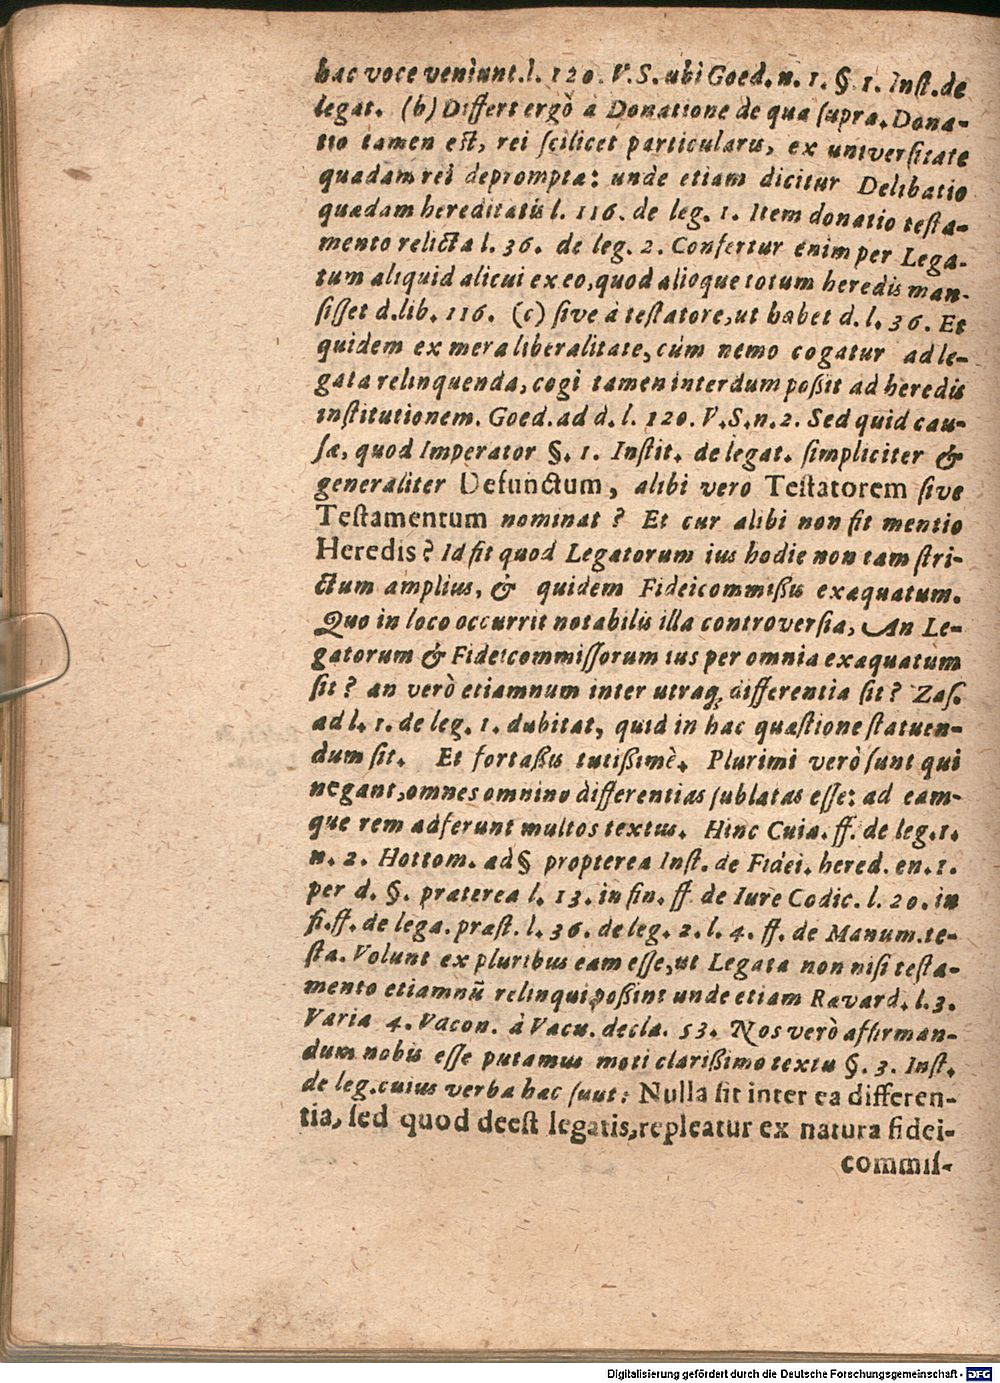 hac voce veniunt. l. 120. V. S. ubi Goed. n. 1. §. 1. Inſt. de
legat. (b) Differt ergò a Donatione de qua ſupra. Dona-
tio tamen eſt, rei ſcilicet particularis, ex univerſitate
quadam rei deprompta: unde etiam dicitur Delibatio
quædam hereditatis l. 116. de leg. 1. Item donatio teſta-
mento relicta l. 36. de leg. 2. Confertur enim per Lega-
tum aliquid alicui ex eo, quod alioque totum heredis man-
ſiſſet d. lib. 116. (c) ſive à teſtatore, ut habet d. l. 36. Et
quidem ex mera liberalitate, cùm nemo cogatur ad le-
gata relinquenda, cogi tamen interdum poßit ad heredis
inſtitutionem. Goed. ad d. l. 120. V. S. n. 2. Sed quid cau-
ſæ, quod Imperator §. 1. Inſtit. de legat. ſimpliciter &
generaliter Defunctum, alibi vero Teſtatorem ſive
Teſtamentum nominat? Et cur alibi non fit mentio
Heredis? Id fit quod Legatorum ius hodie non tam ſtri-
ctum amplius, & quidem Fideicommißis exæquatum.
Quo in loco occurrit notabilis illa controverſia, An Le-
gatorum & Fideicommiſſorum ius per omnia exæquatum
ſit? an verò etiamnum inter utraq; differentia ſit? Zaſ.
ad l. 1. de leg. 1. dubitat, quid in hac quæſtione ſtatuen-
dum ſit. Et fortaßis tutißimè. Plurimi verò ſunt qui
negant, omnes omnino differentias ſublatas eſſe: ad eam-
que rem adferunt multos textus. Hinc Cuia. ff. de leg. 1.
n. 2. Hottom. ad § propterea Inſt. de Fidei. hered. en. 1.
per d. §. præterea l. 13. in fin. ff de Iure Codic. l. 20. in
fi. ff. de lega. præſt. l. 36. de leg. 2. l. 4. ff. de Manum. te-
ſta. Volunt ex pluribus eam eſſe, ut Legata non niſi teſta-
mento etiamnū relinqui poßint unde etiam Rævard. l. 3.
Varia 4. Vacon. à Vacu. decla. 53. Nos verò affirman-
dum nobis eſſe putamus moti clarißimo textu §. 3. Inſt.
de leg. cuius verba hæc ſunt: Nulla ſit inter ea differen-
tia, ſed quod deeſt legatis, repleatur ex natura fidei-
commiſ-
Digitalisierung gefördert durch die Deutsche Forschungsgemeinschaft - DFG